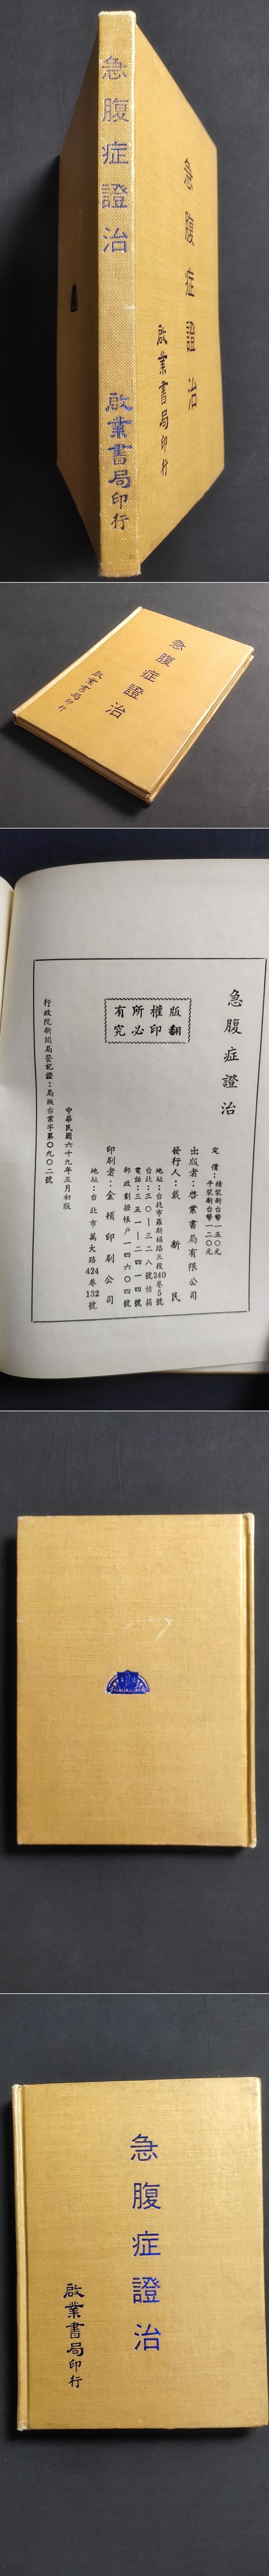 急腹症證治
啟業書局印行
急腹症證治
啟業書局印行
急腹症證治
啟業書局印行
急腹症證治
版權所有
翻印必究
定價：精裝新台幣一五〇元
平裝新台幣一二〇元
出版者：啓業書局有限公司
發行人：戴新民
地址：台北市羅斯福路三段240巷5號
台北：三〇｜三二八號信箱
電話：三五一｜二四一四號
郵政劃撥帳戶一四六〇四號
印刷者：金頎印刷公司
地址：台北市萬大路424巷132號
中華民國六十九年五月初版
行政院新聞局登記證：局版台業字第〇九〇二號
急腹症證治
啟業書局印行